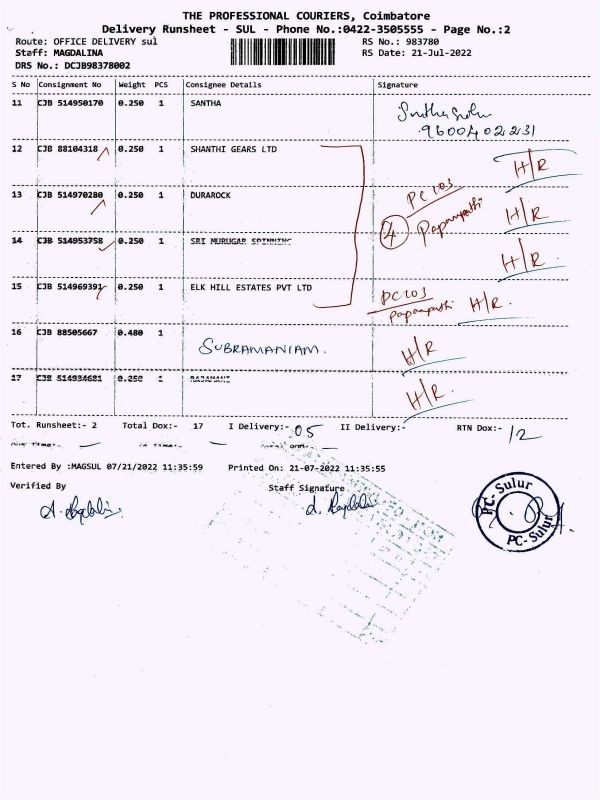 THE PROFESSIONAL COURIERS, Coimbatore
Delivery Runsheet - SUL - Phone No.:0422-3505555 - Page No.:2
Route: OFFICE DELIVERY sul
RS No.: 983780
Staff: MAGDALINA
RS Date: 21-Jul-2022
DRS No.: DCJB98378002
S No Consignment No Weight PCS Consignee Details Signature
11 CJB 514950170 0.250 1 SANTHA
9600402231
12 CJB 88104318 0.250 1 SHANTHI GEARS LTD H/R
13 CJB 514970280 0.250 1 DURAROCK H/R
4
14 CJB 514953758 0.250 1 SRI MURUGAR SPINNING H/R
15 CJB 514969391 0.250 1 ELK HILL ESTATES PVT LTD H/R.
16 CJB 88505667 0.480 1 SUBRAMANIAM. H/R
17 CJB 514934681 0.250 1 RAJAMANI H/R.
Tot. Runsheet:- 2 Total Dox:- 17 I Delivery:- 05 II Delivery:- RTN Dox:- 12
Entered By :MAGSUL 07/21/2022 11:35:59 Printed On: 21-07-2022 11:35:55
Verified By Staff Signature
PC- Sulur
PC- Sulur